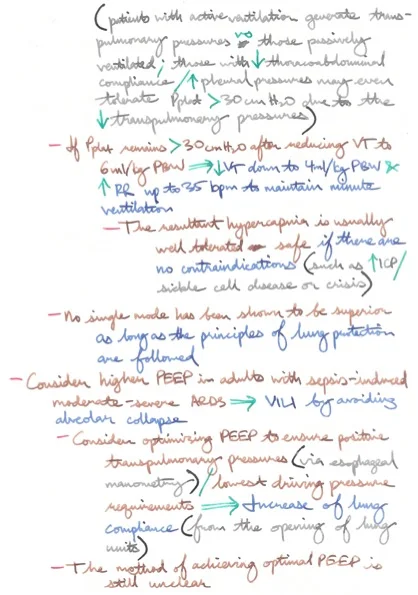 (patients with active ventilation generate trans-
pulmonary pressures vs those passively
ventilated; those with ↓ thoracoabdominal
compliance / ↑ pleural pressures may even
tolerate Pplat > 30 cm H2O due to the
↓ transpulmonary pressures)
- If Pplat remains > 30 cm H2O after reducing VT to
6 ml/kg PBW ⇒ ↓ VT down to 4 ml/kg PBW &
↑ RR up to 35 bpm to maintain minute
ventilation
- The resultant hypercapnia is usually
well tolerated safe if there are
no contraindications (such as ↑ ICP /
sickle cell disease or crisis)
- No single mode has been shown to be superior
as long as the principles of lung protection
are followed
- Consider higher PEEP in adults with sepsis-induced
moderate-severe ARDS ⇒ ↓ VILI by avoiding
alveolar collapse
- Consider optimizing PEEP to ensure positive
transpulmonary pressures (via esophageal
manometry) / lowest driving pressure
requirements ⇒ Increase of lung
compliance (from the opening of lung
units)
- The method of achieving optimal PEEP is
still unclear